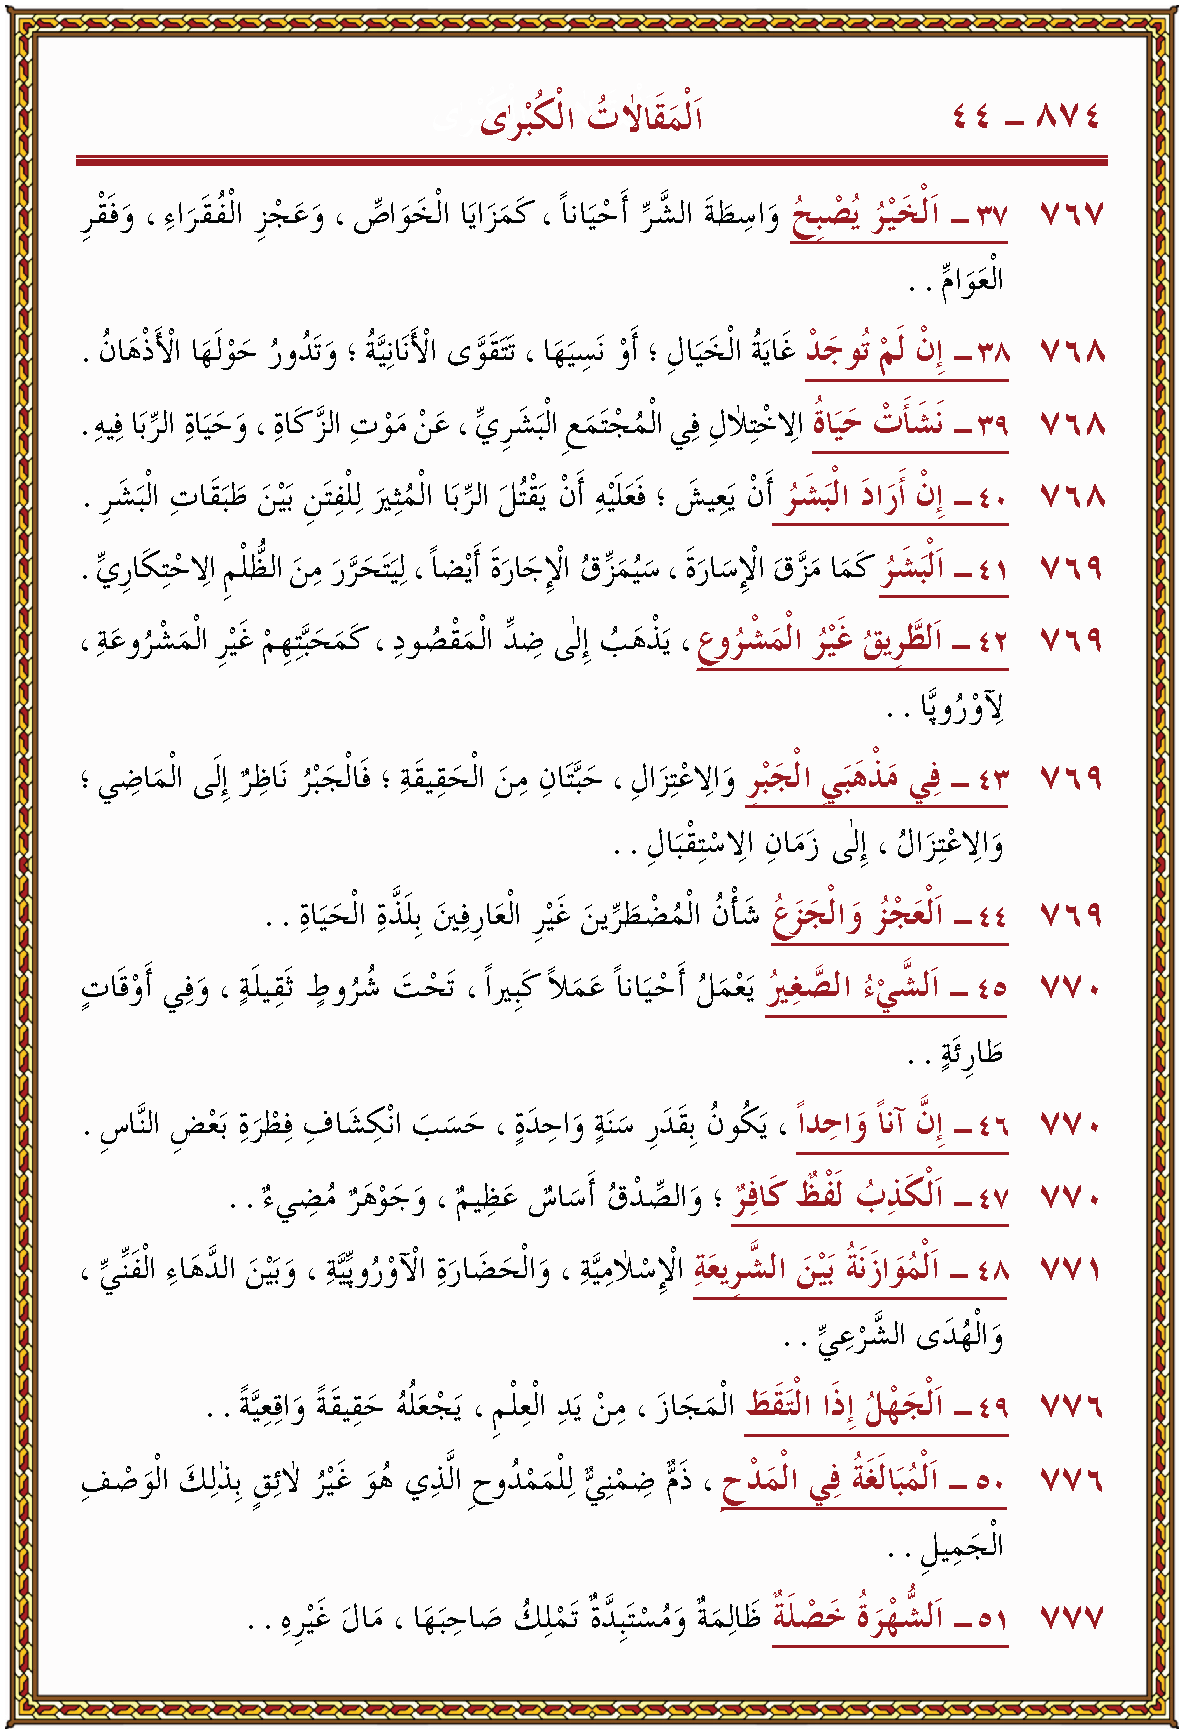 ٨٧٤ ــ ٤٤ اَلْمَقَالاٰتُ الْكُبْرٰى
٧٦٧ ٣٧ ــ اَلْخَيْرُ يُصْبِحُ وَاسِطَةَ الشَّرِّ أَحْيَاناً ، كَمَزَايَا الْخَوَاصِّ ، وَعَجْزِ الْفُقَرَاءِ ، وَفَقْرِ
الْعَوَامِّ . .
٧٦٨ ٣٨ ــ إِنْ لَمْ تُوجَدْ غَايَةُ الْخَيَالِ ؛ أَوْ نَسِيَهَا ، تَتَقَوَّى الْأَنَانِيَّةُ ؛ وَتَدُورُ حَوْلَهَا الْأَذْهَانُ .
٧٦٨ ٣٩ ــ نَشَأَتْ حَيَاةُ الِاخْتِلاٰلِ فِي الْمُجْتَمَعِ الْبَشَرِيِّ ، عَنْ مَوْتِ الزَّكَاةِ ، وَحَيَاةِ الرِّبَا فِيهِ .
٧٦٨ ٤٠ ــ إِنْ أَرَادَ الْبَشَرُ أَنْ يَعِيشَ ؛ فَعَلَيْهِ أَنْ يَقْتُلَ الرِّبَا الْمُثِيرَ لِلْفِتَنِ بَيْنَ طَبَقَاتِ الْبَشَرِ .
٧٦٩ ٤١ ــ اَلْبَشَرُ كَمَا مَزَّقَ الْإِسَارَةَ ، سَيُمَزِّقُ الْإِجَارَةَ أَيْضاً ، لِيَتَحَرَّرَ مِنَ الظُّلْمِ الِاحْتِكَارِيِّ .
٧٦٩ ٤٢ ــ اَلطَّرِيقُ غَيْرُ الْمَشْرُوعِ ، يَذْهَبُ إِلٰى ضِدِّ الْمَقْصُودِ ، كَمَحَبَّتِهِمْ غَيْرِ الْمَشْرُوعَةِ ،
لِآوْرُوپَّا . .
٧٦٩ ٤٣ ــ فِي مَذْهَبَيِ الْجَبْرِ وَالِاعْتِزَالِ ، حَبَّتَانِ مِنَ الْحَقِيقَةِ ؛ فَالْجَبْرُ نَاظِرٌ إِلَى الْمَاضِي ؛
وَالِاعْتِزَالُ ، إِلٰى زَمَانِ الِاسْتِقْبَالِ . .
٧٦٩ ٤٤ ــ اَلْعَجْزُ وَالْجَزَعُ شَأْنُ الْمُضْطَرِّينَ غَيْرِ الْعَارِفِينَ بِلَذَّةِ الْحَيَاةِ . .
٧٧٠ ٤٥ ــ اَلشَّيْءُ الصَّغِيرُ يَعْمَلُ أَحْيَاناً عَمَلاً كَبِيراً ، تَحْتَ شُرُوطٍ ثَقِيلَةٍ ، وَفِي أَوْقَاتٍ
طَارِئَةٍ . .
٧٧٠ ٤٦ ــ إِنَّ آناً وَاحِداً ، يَكُونُ بِقَدَرِ سَنَةٍ وَاحِدَةٍ ، حَسَبَ انْكِشَافِ فِطْرَةِ بَعْضِ النَّاسِ .
٧٧٠ ٤٧ ــ اَلْكَذِبُ لَفْظٌ كَافِرٌ ؛ وَالصِّدْقُ أَسَاسٌ عَظِيمٌ ، وَجَوْهَرٌ مُضِيءٌ . .
٧٧١ ٤٨ ــ اَلْمُوَازَنَةُ بَيْنَ الشَّرِيعَةِ الْإِسْلاٰمِيَّةِ ، وَالْحَضَارَةِ الْآوْرُوپِّيَّةِ ، وَبَيْنَ الدَّهَاءِ الْفَنِّيِّ ،
وَالْهُدَى الشَّرْعِيِّ . .
٧٧٦ ٤٩ ــ اَلْجَهْلُ إِذَا الْتَقَطَ الْمَجَازَ ، مِنْ يَدِ الْعِلْمِ ، يَجْعَلُهُ حَقِيقَةً وَاقِعِيَّةً . .
٧٧٦ ٥٠ ــ اَلْمُبَالَغَةُ فِي الْمَدْحِ ، ذَمٌّ ضِمْنِيٌّ لِلْمَمْدُوحِ الَّذِي هُوَ غَيْرُ لاٰئِقٍ بِذٰلِكَ الْوَصْفِ
الْجَمِيلِ . .
٧٧٧ ٥١ ــ اَلشُّهْرَةُ خَصْلَةٌ ظَالِمَةٌ وَمُسْتَبِدَّةٌ تَمْلِكُ صَاحِبَهَا ، مَالَ غَيْرِهِ . .